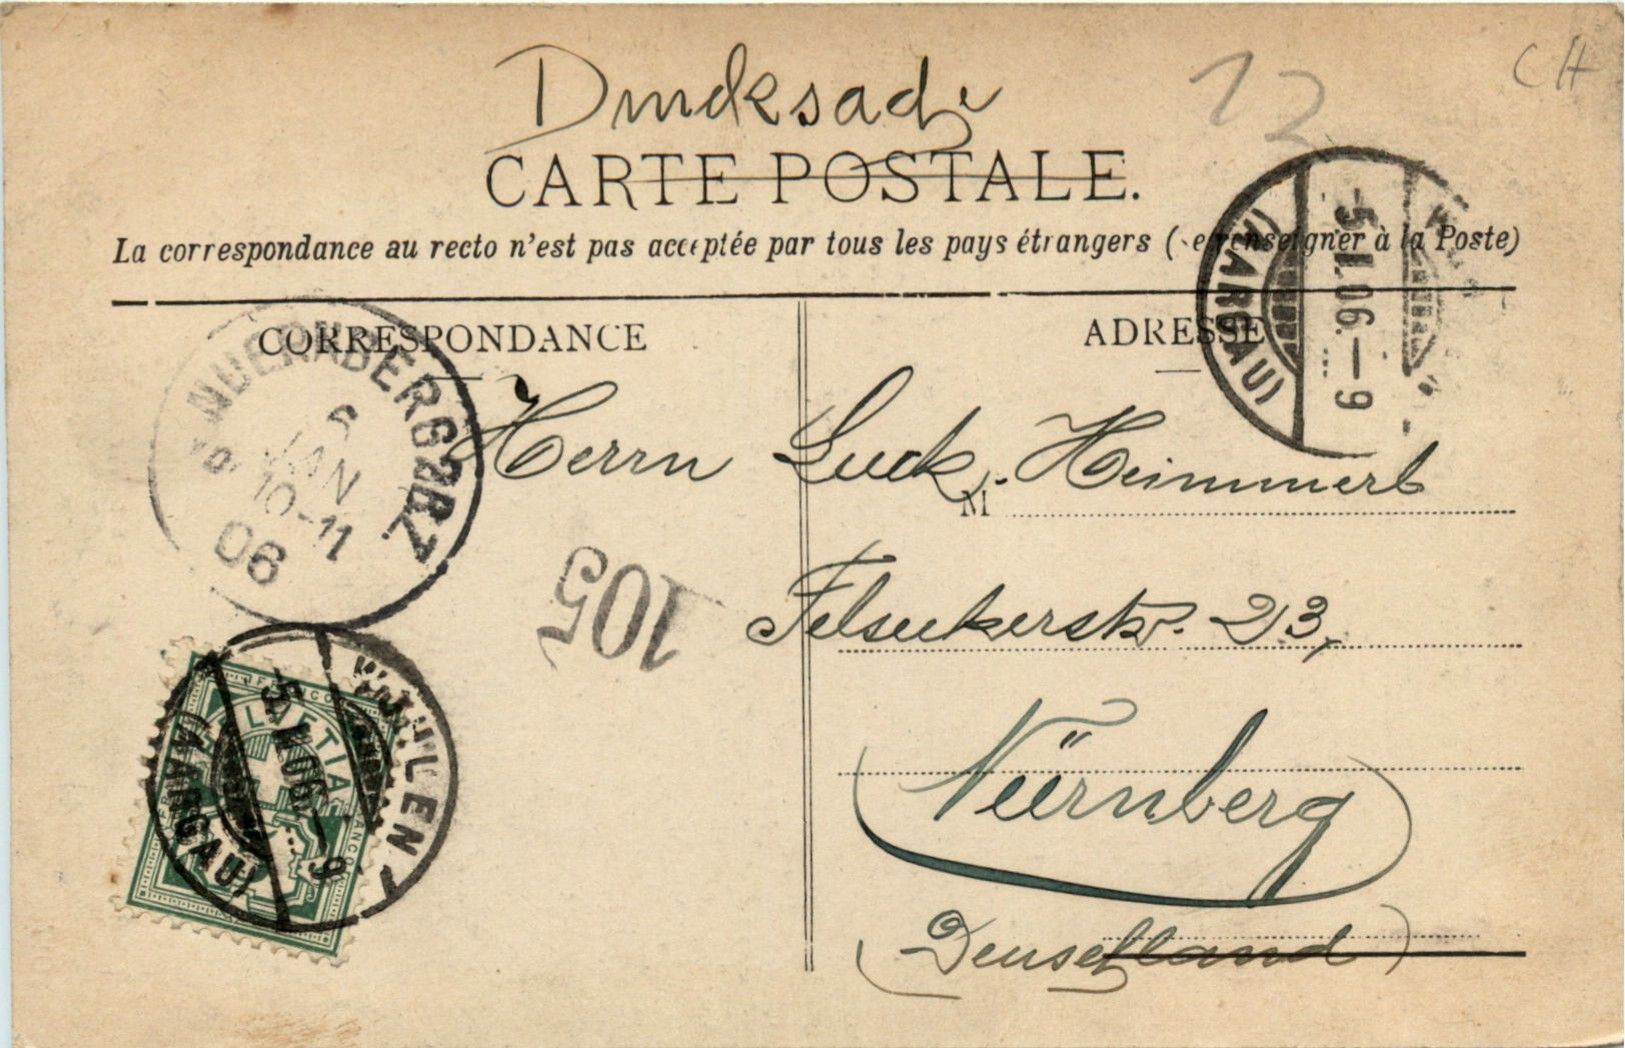 CH
12
Drucksache
CARTE POSTALE.
La correspondance au recto n'est pas acceptée par tous les pays étrangers (se renseigner à la Poste)
(AARGAU)
-5.I.06.-9
CORRESPONDANCE
ADRESSE
NUERNBERG 2 B.Z.
6
JAN
10-11
06
Herrn Luck. Heimmerl
M
105
23,
Nürnberg
(Deutschland)
FRANCO
HELVETIA
FRANCO
5.I.06.-9
(AARGAU)